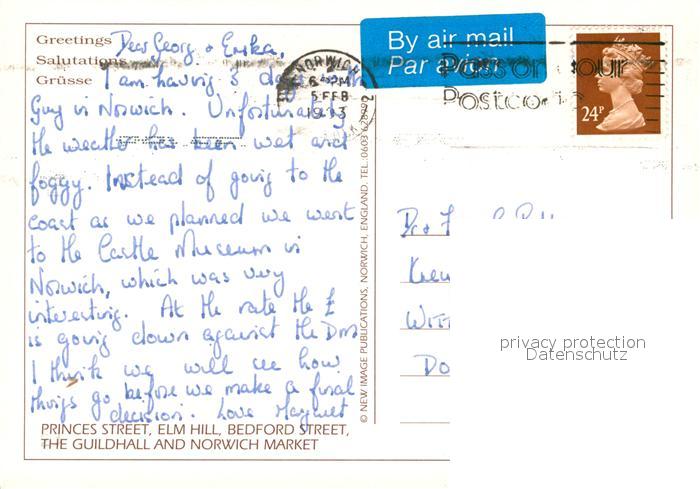 Greetings
Salutations
Grüsse
Dear Georg & Erika,
I am having 3 days with
Guy in Norwich. Unfortunately
the weather has been wet and
foggy. Instead of going to the
coast as we planned we went
to the Castle Museum in
Norwich, which was very
interesting. At the rate the £
is going down against the Dm
I think we will see how
things go before we make a final
decision. Love Margaret
PRINCES STREET, ELM HILL, BEDFORD STREET,
THE GUILDHALL AND NORWICH MARKET
© NEW IMAGE PUBLICATIONS, NORWICH, ENGLAND. TEL: 0603
By air mail
Par avion
NORWICH
6 PM
5 FEB
1993
Pass on your
Postcode
24P
Wit
Do
privacy protection
Datenschutz